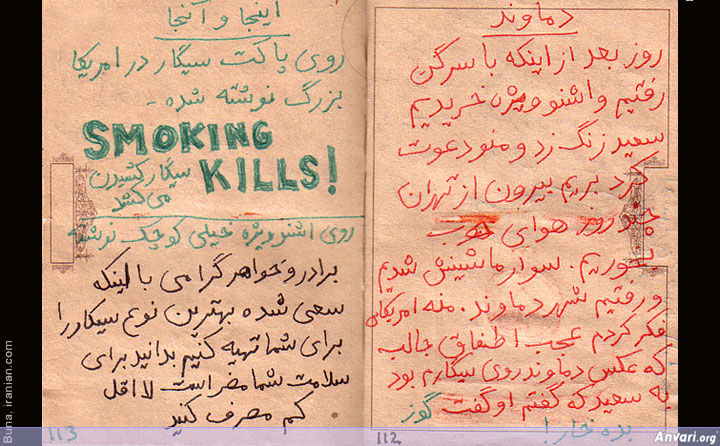 دماوند
روز بعد از اینکه با سرگن
رفتیم و اشنو ویژه خریدیم
سعید زنگ زد و منو دعوت
کرد بریم بیرون از تهران
چند روز هوای خوب
بخوریم. سوار ماشینش شدیم
و رفتیم شهر دماوند. منه امریکائی
فکر کردم عجب اطفاق جالب
که عکس دماوند روی سیگارم بود
به سعید که گفتم او گفت گوز
بده خارا!
112
اینجا و آنجا
روی پاکت سیگار در امریکا
بزرگ نوشته شده -
SMOKING
KILLS!
سیگار کشیدن
می کشد
روی اشنو ویژه خیلی کوچک نوشته
برادر و خواهر گرامی با اینکه
سعی شده بهترین نوع سیگار را
برای شما تهیه کنیم بدانید برای
سلامت شما مضر است لااقل
کم مصرف کنید
113
Buna. iranian.com
Anvari.org